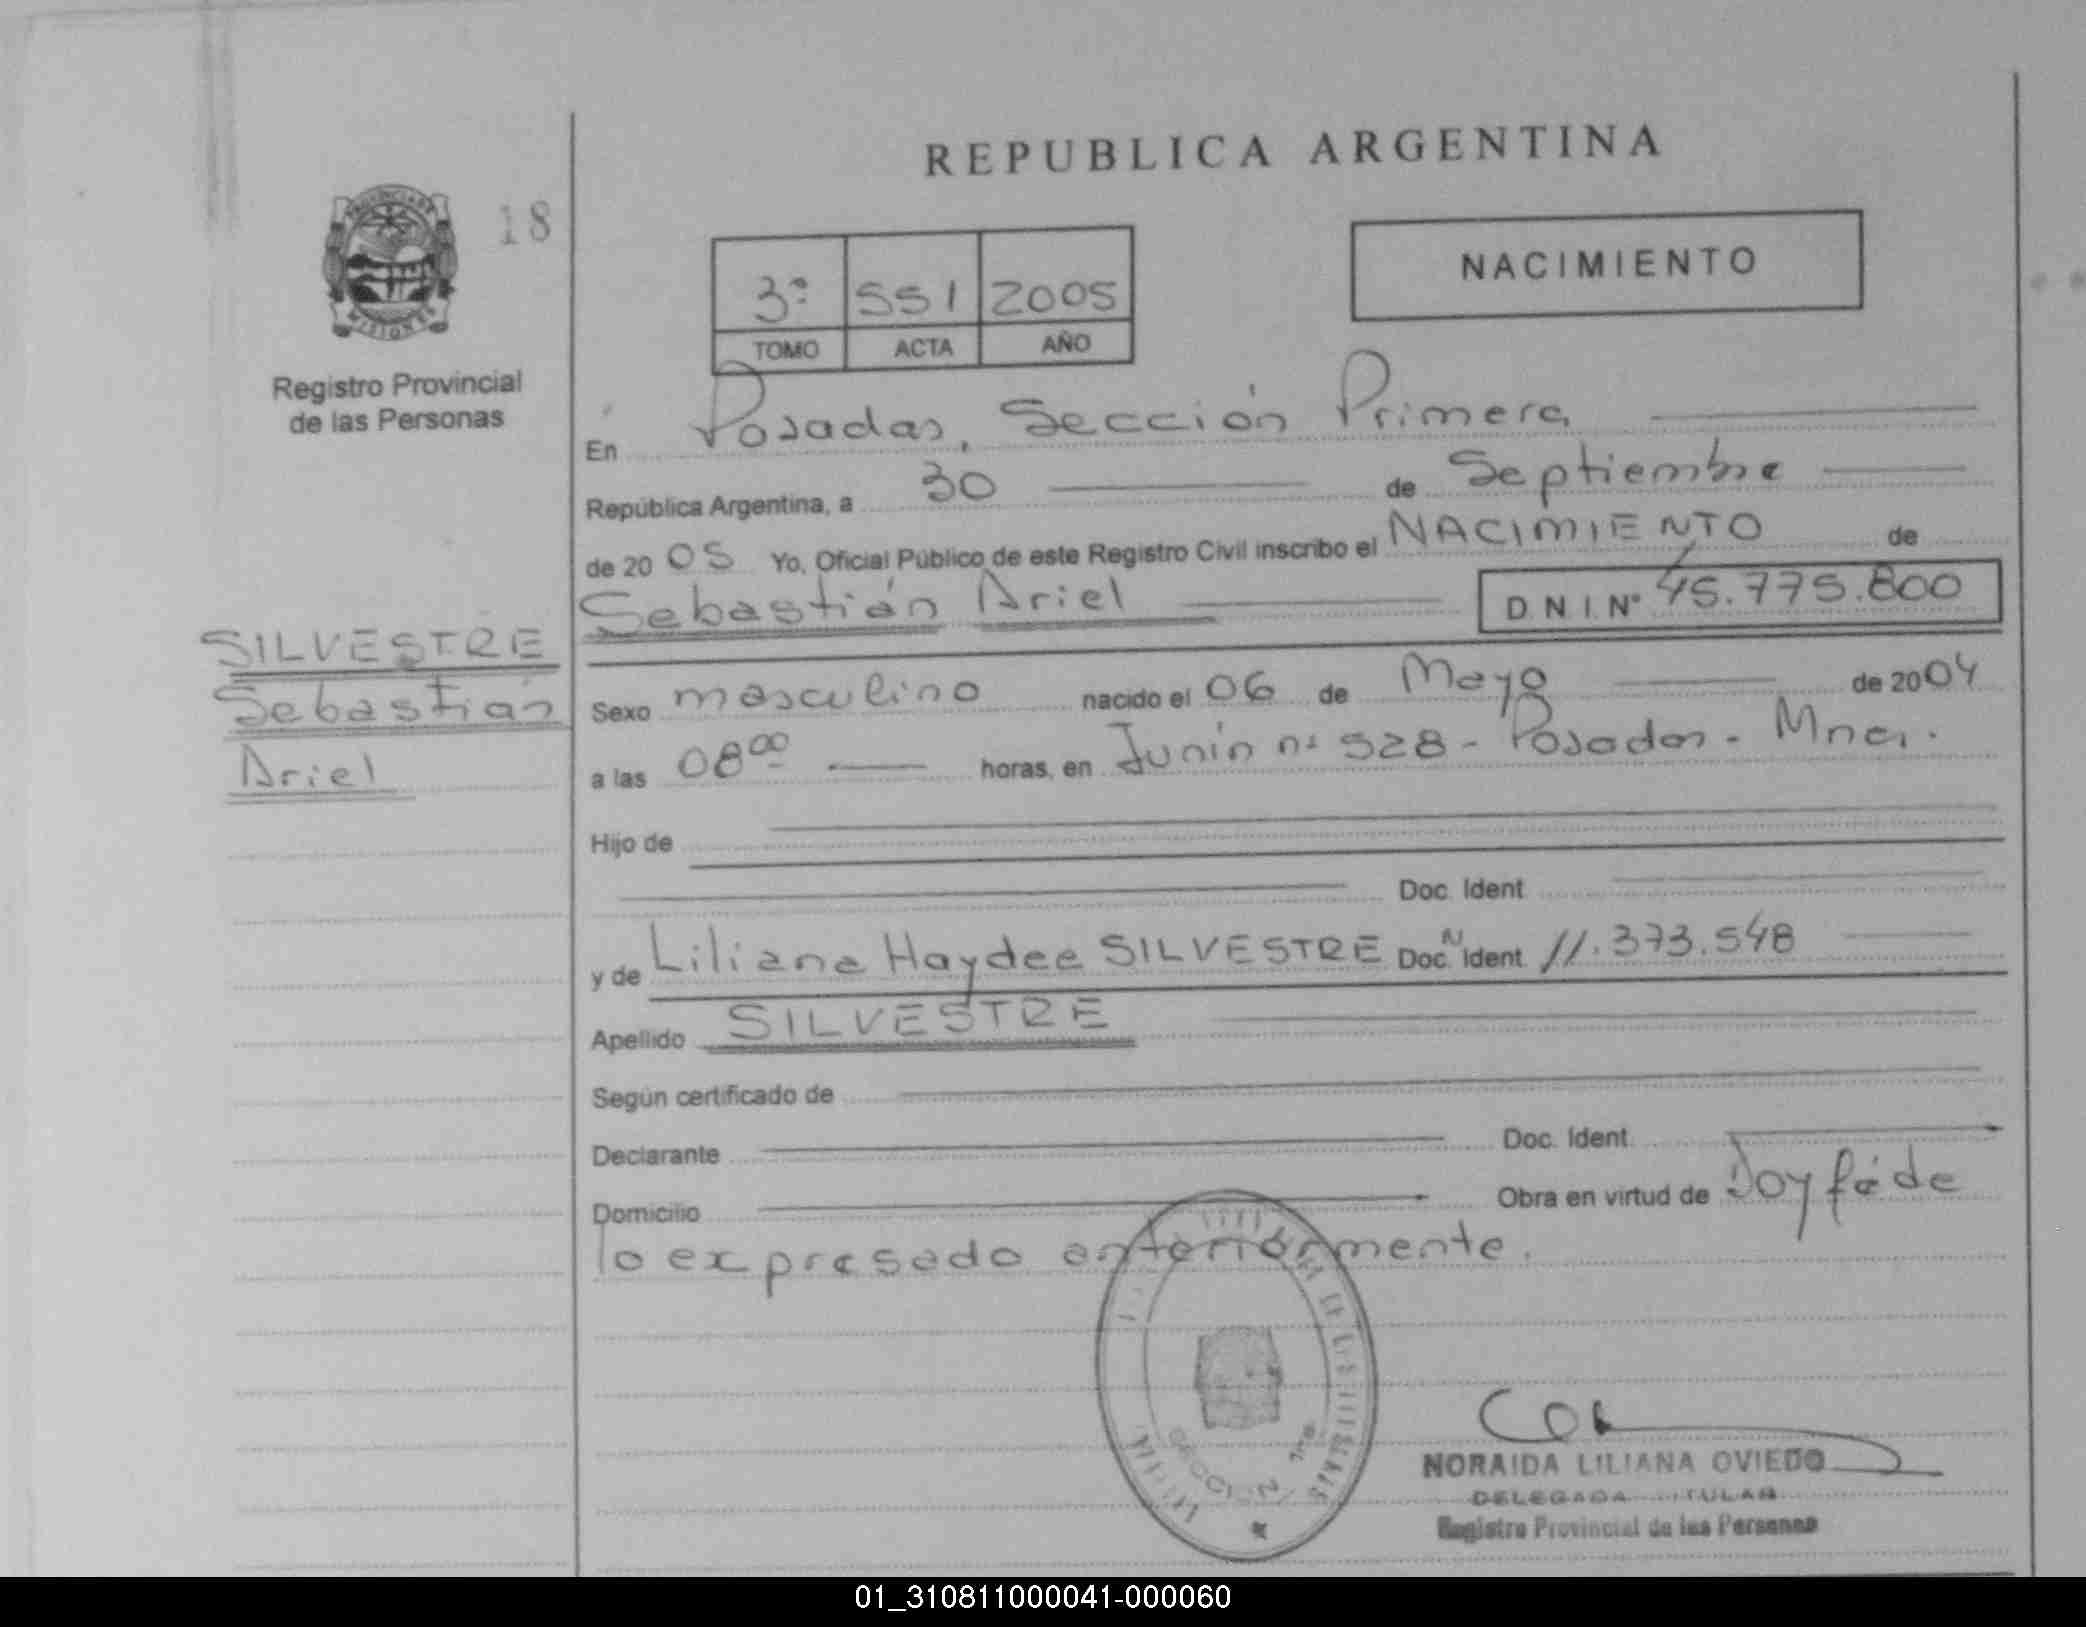 REPUBLICA ARGENTINA
PROVINCIA DE
MISIONES
18
Registro Provincial
de las Personas
3º 551 2005
TOMO ACTA AÑO
NACIMIENTO
En Posadas, Sección Primera
República Argentina, a 30 de Septiembre
de 2005 Yo, Oficial Público de este Registro Civil inscribo el NACIMIENTO de
Sebastián Ariel D.N.I. Nº 45.775.800
SILVESTRE
Sebastián
Ariel
Sexo masculino nacido el 06 de Mayo de 2004
a las 08⁰⁰ horas, en Junín nº 528 - Posadas - Mnes.
Hijo de
Doc. Ident
y de Liliana Haydee SILVESTRE Doc. N Ident 11.373.548
Apellido SILVESTRE
Según certificado de
Declarante Doc. Ident.
Domicilio Obra en virtud de Doy fé de
lo expresado anteriormente.
SECCION 1ra
NORAIDA LILIANA OVIEDO
DELEGADA TITULAR
Registro Provincial de las Personas
01_310811000041-000060